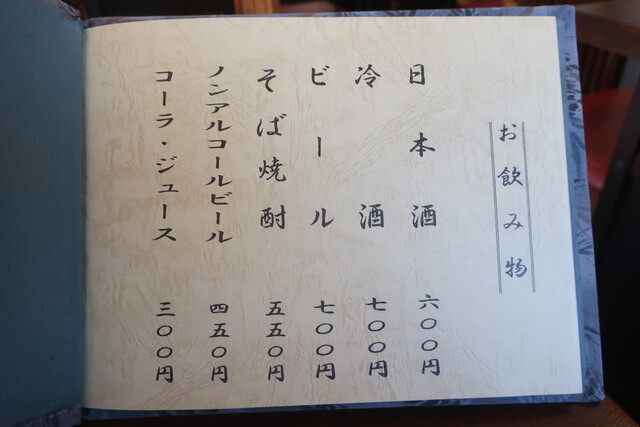 お飲み物
日本酒 六〇〇円
冷酒 七〇〇円
ビール 七〇〇円
そば焼酎 五五〇円
ノンアルコールビール 四五〇円
コーラ・ジュース 三〇〇円